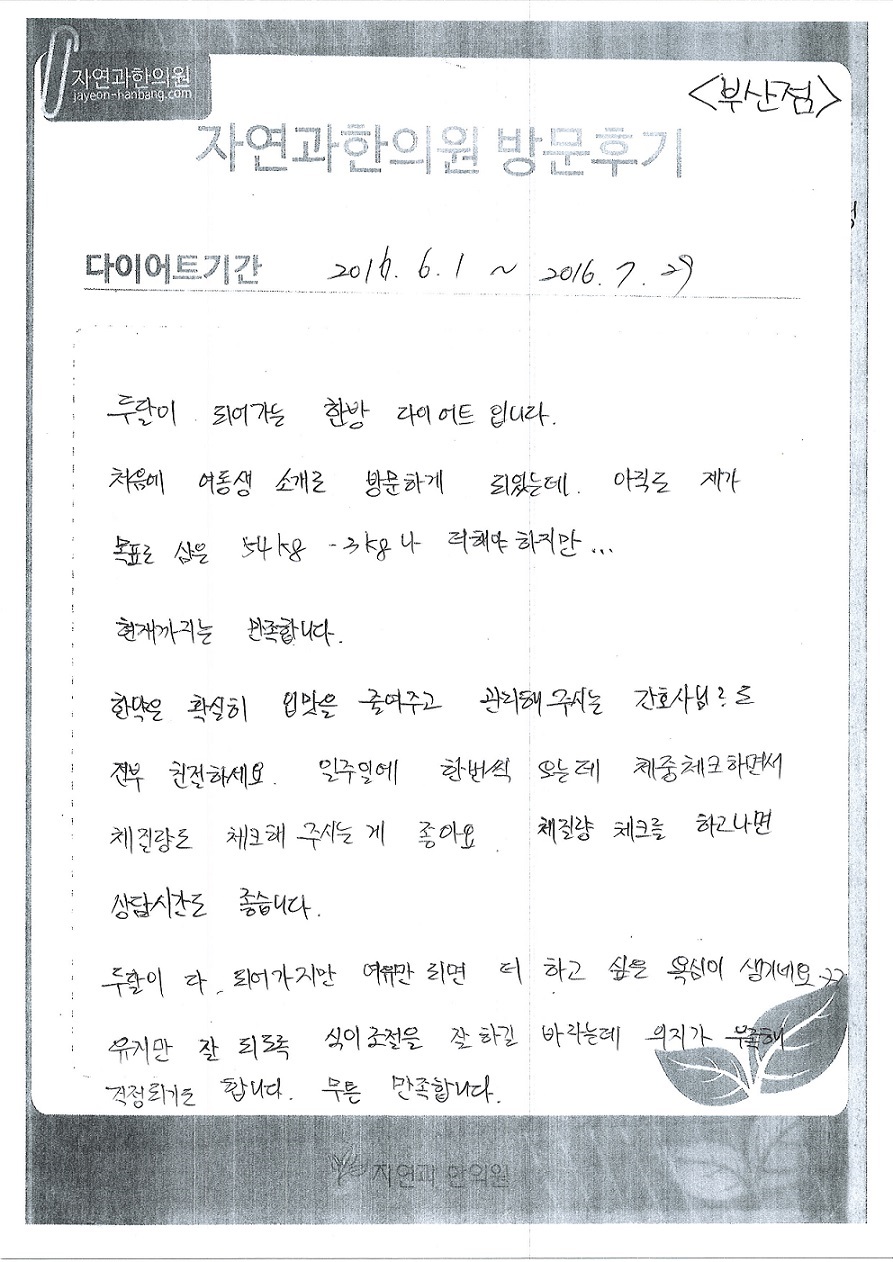 자연과한의원
jayeon-hanbang.com
<부산점>
자연과한의원 방문후기
다이어트기간 2016. 6. 1 ~ 2016. 7. 29
두달이 되어가는 한방 다이어트 입니다.
처음에 여동생 소개로 방문하게 되었는데. 아직도 제가
목표로 삼은 54kg -3kg나 더해야 하지만...
현재까지는 만족합니다.
한약은 확실히 입맛을 줄여주고 관리해 주시는 간호사님들
전부 친절하세요. 일주일에 한번씩 오는데 체중체크하면서
체질량도 체크해 주시는게 좋아요. 체질량 체크를 하고나면
상담시간도 좋습니다.
두달이 다 되어가지만 여유만 되면 더 하고 싶은 욕심이 생기네요.^^
유지만 잘 되도록 식이조절을 잘 하길 바라는데 의지가 부족해
걱정되기도 합니다. 무튼 만족합니다.
자연과 한의원